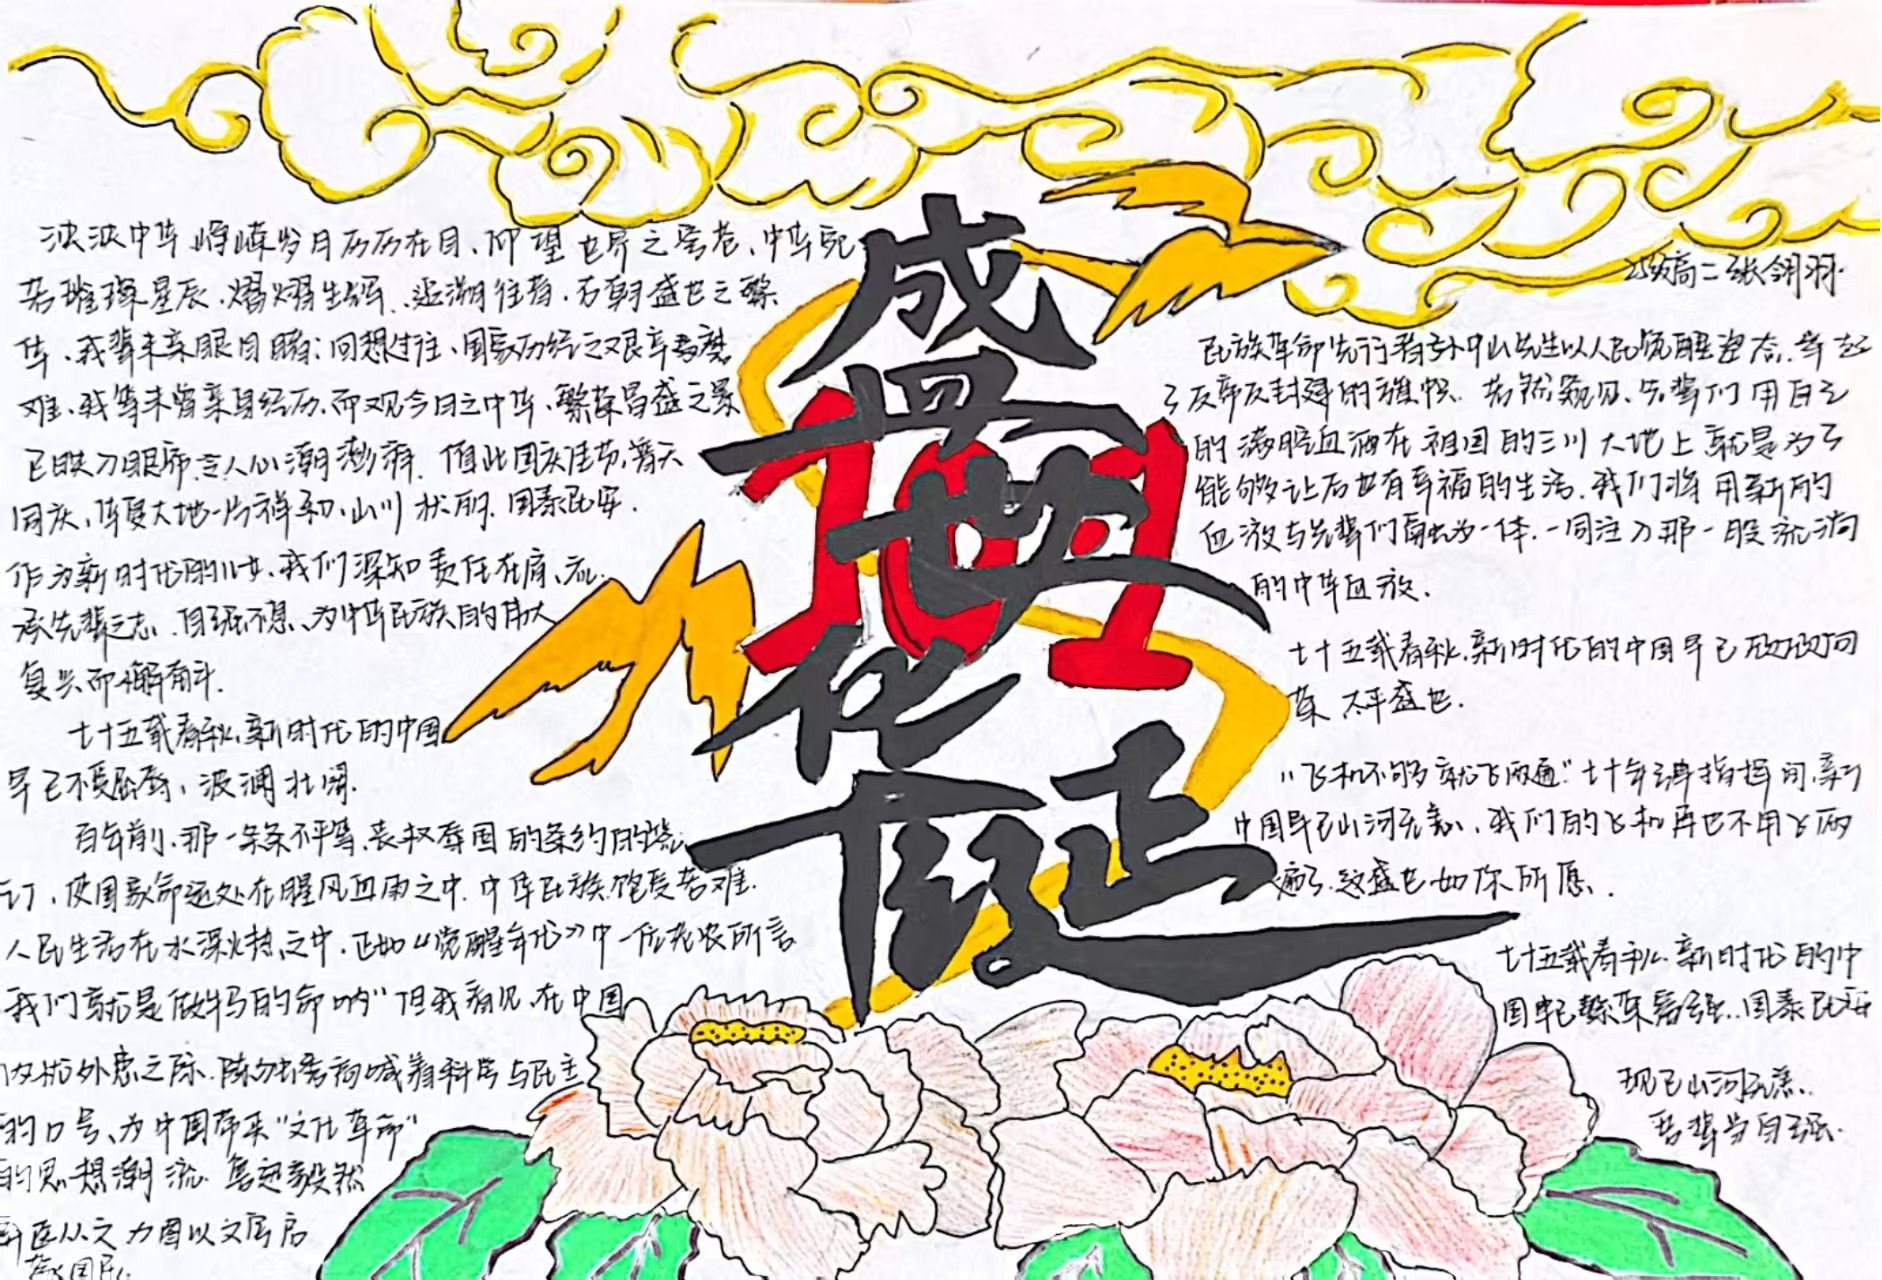 泱泱中华,峥嵘岁月历历在目,仰望世界之穹苍,中华宛
若璀璨星辰,熠熠生辉,追溯往昔,古朝盛世之繁
华,我辈未亲眼目睹;回想过往,国家历经之艰辛磨
难,我等未曾亲身经历,而观今日之中华,繁荣昌盛之景
已映入眼帘,令人心潮澎湃.值此国庆佳节,普天
同庆,华夏大地一片祥和,山川状丽.国泰民安.
作为新时代的儿女,我们深知责任在肩,
承先辈之志.自强不息、为中华民族的伟大
复兴而不懈奋斗.
七十五载春秋,新时代的中国
早已不受屈辱,波澜壮阔.
百年前,那一条条不平等、丧权辱国的条约的签
订,使国家命运处在腥风血雨之中.中华民族饱受苦难.
人民生活在水深火热之中.正如《觉醒年代》中一位老农所言
我们就是做牛马的命呐"但我看见,在中国
内忧外患之际.陈独秀高喊着科学与民主
的口号、为中国带来"文化革命"
的思想潮流.鲁迅毅然
弃医从文力图以文唤启
盛世华诞
101
高二张翎羽.
民族革命先行者孙中山先生以人民觉醒姿态.举起
了反帝反封建的旗帜.若然窥见、先辈们用自己
的满腔血洒在祖国的三川大地上就是为了
能够让后世有幸福的生活.我们将用新的
血液与先辈们融为一体.一同注入那一股流淌
的中华血液.
七十五载春秋.新时代的中国早已欣欣向
荣 太平盛世.
"飞机不够就飞两遍"七十年弹指挥间,新
中国早已山河无恙,我们的飞机再也不用飞两
遍了.这盛世如你所愿.
七十五载春秋.新时代的中
国早已繁华富强.国泰民安
现已山河无恙.
吾辈当自强.